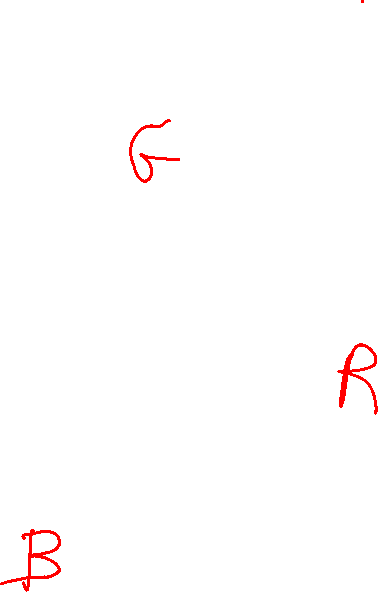 G
R
B